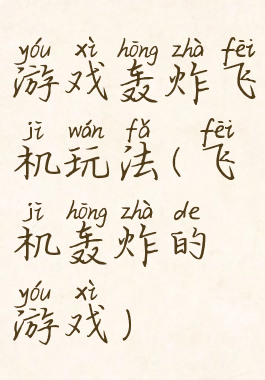 yóu xì hōng zhà fēi
游戏轰炸飞
jī wán fǎ fēi
机玩法(飞
jī hōng zhà de
机轰炸的
yóu xì
游戏)